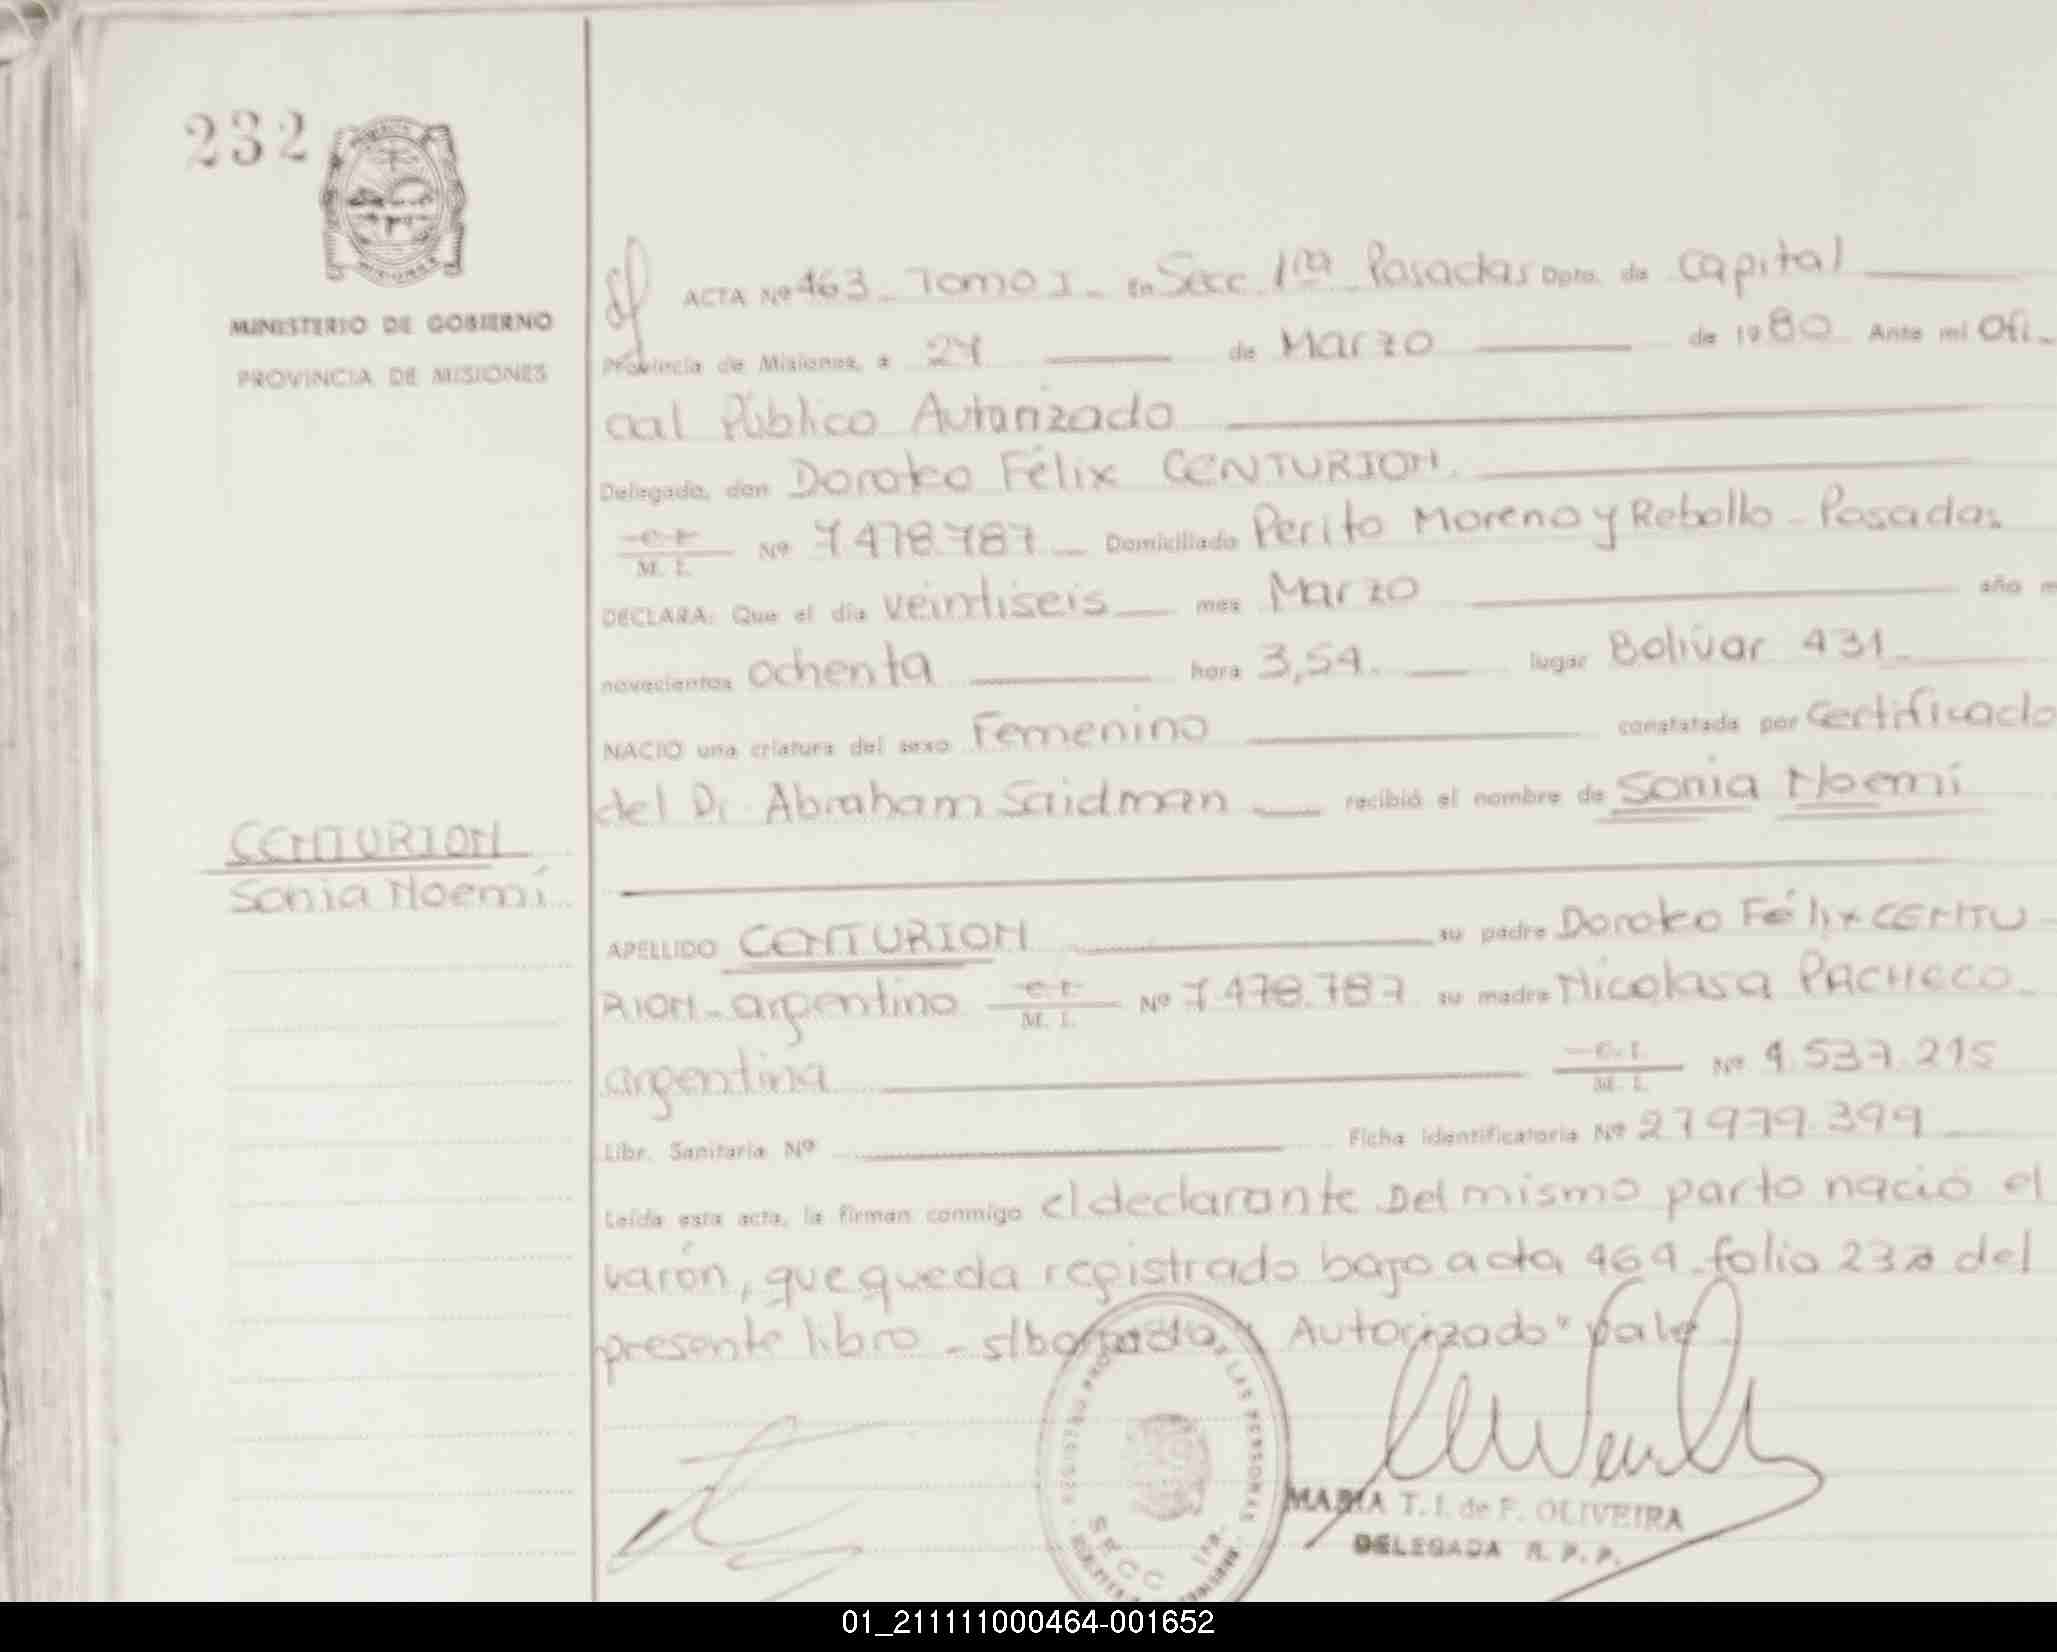 232
MINISTERIO DE GOBIERNO
PROVINCIA DE MISIONES
ACTA Nº 463 - Tomo I - en Secc. 1ra Posadas Dpto. de Capital
Provincia de Misiones, a 27 de Marzo de 1980 Ante mi Ofi-
cial Público Autorizado
Delegado, don Doroteo Félix CENTURION.
C. I. M. I. Nº 7.478.787 Domiciliado Perito Moreno y Rebollo - Posadas
DECLARA: Que el día veintiseis mes Marzo año m
novecientos ochenta hora 3,54. lugar Bolívar 431
NACIO una criatura del sexo Femenino constatada por Certificado
del Dr Abraham Saidman recibió el nombre de Sonia Noemí
CENTURION
Sonia Noemí
APELLIDO CENTURION su padre Doroteo Félix CENTU
RION - argentino C. I. M. I. Nº 7.478.787 su madre Nicolasa PACHECO
argentina C. I. M. I. Nº 4.537.215
Libr. Sanitaria Nº Ficha identificatoria Nº 27 979.399
Leída esta acta, la firman conmigo el declarante Del mismo parto nació el
varón, que queda registrado bajo acta 464 folio 232 del
presente libro - s/borrado " Autorizado" Vale
REGISTRO PRO DE LAS PERSONAS
SECC 1RA
MARIA T. I. de F. OLIVEIRA
DELEGADA R. P. P.
01_211111000464-001652